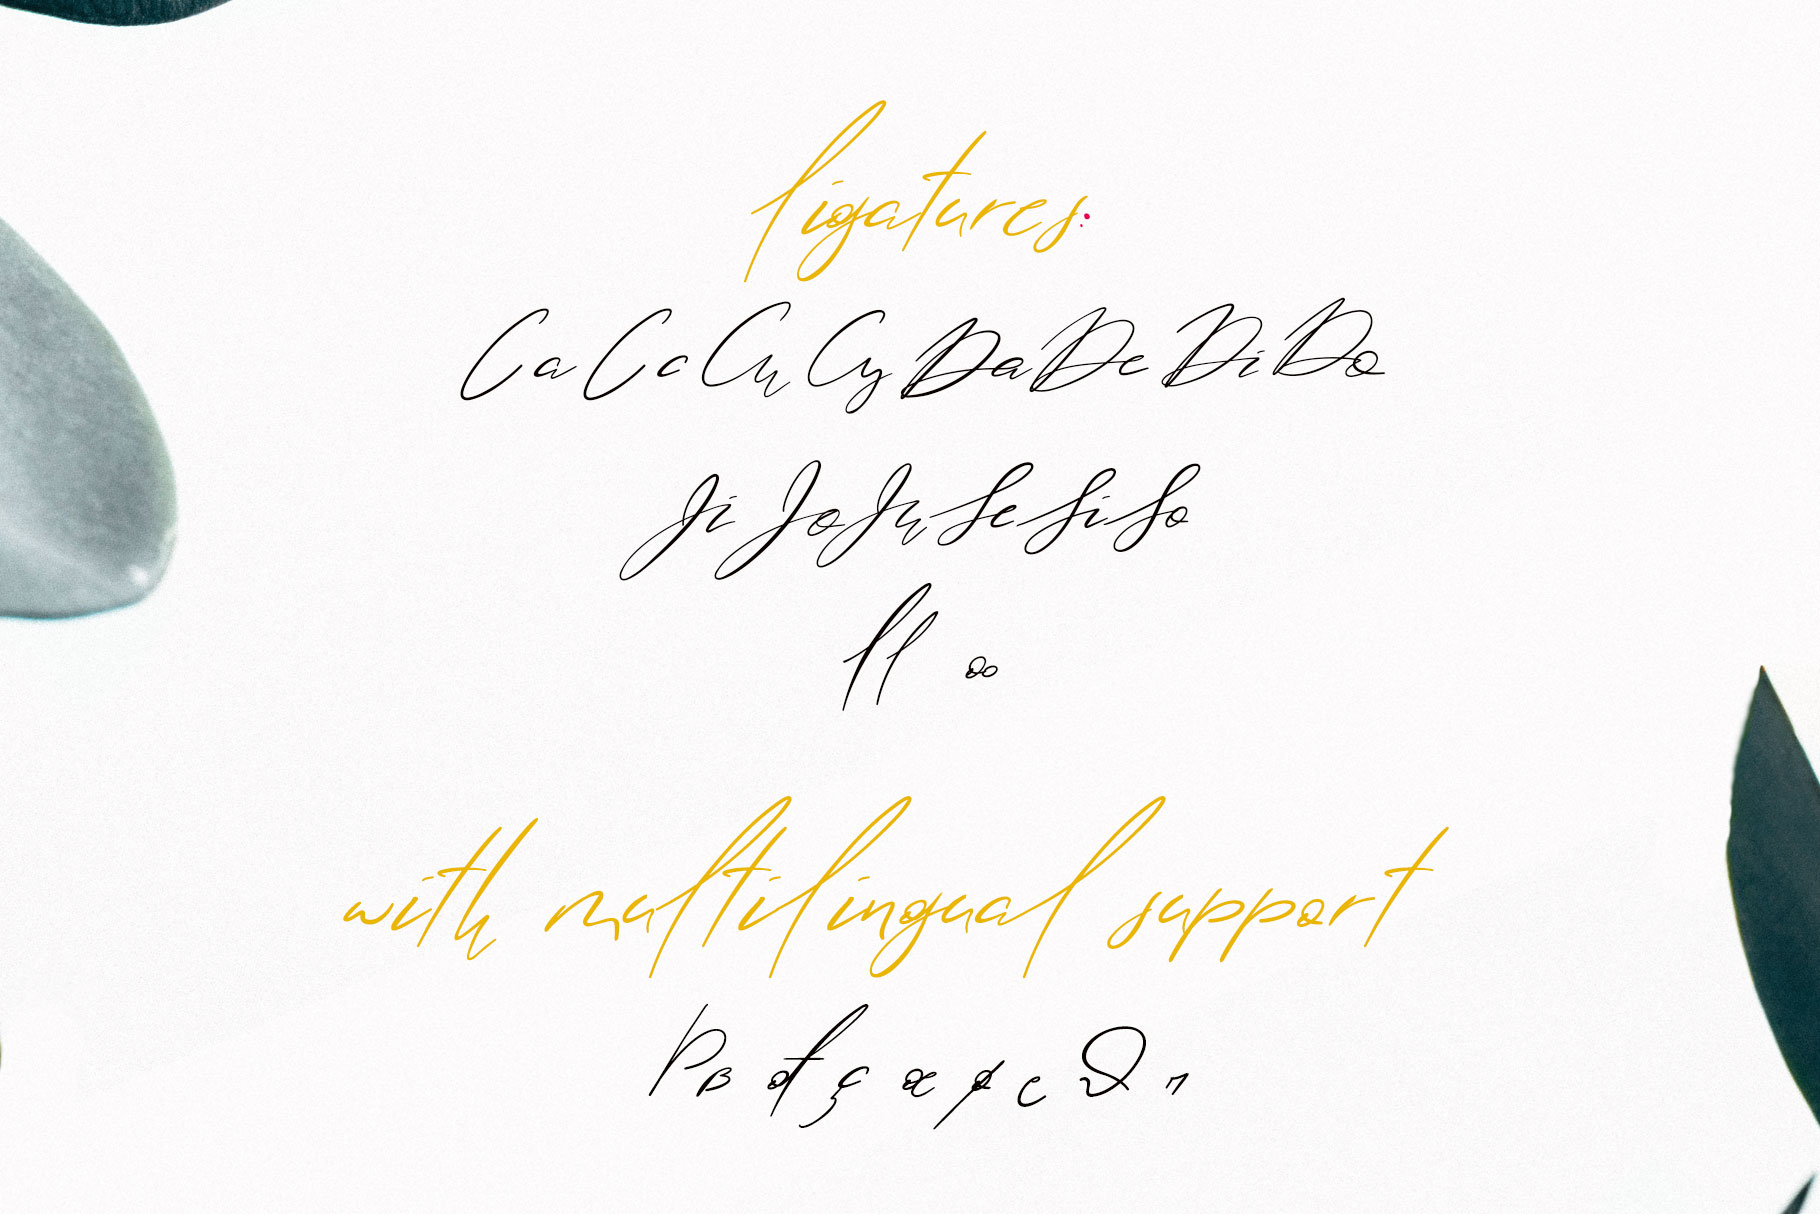 ligatures:
Ca Ce Cu Cy Da De Di Do
Ji Jo Ju Se Si So
ll oo
with multilingual support